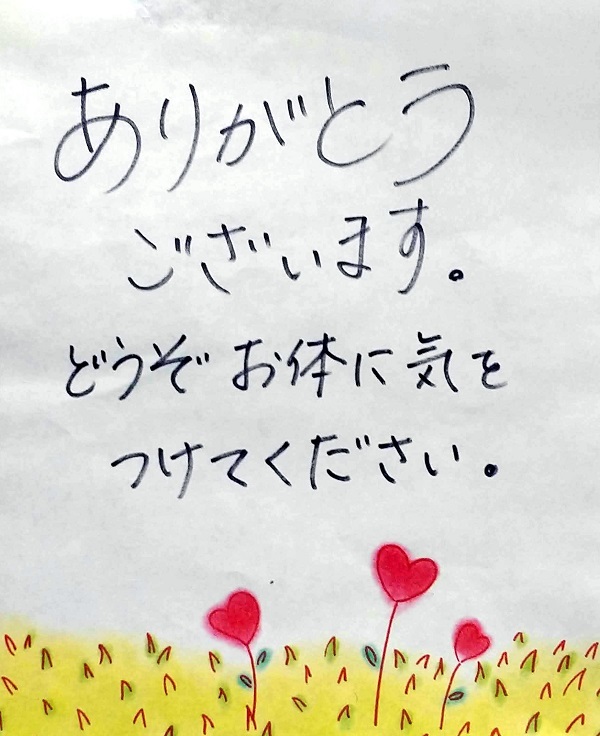 ありがとう
ございます。
どうぞお体に気を
つけてください。